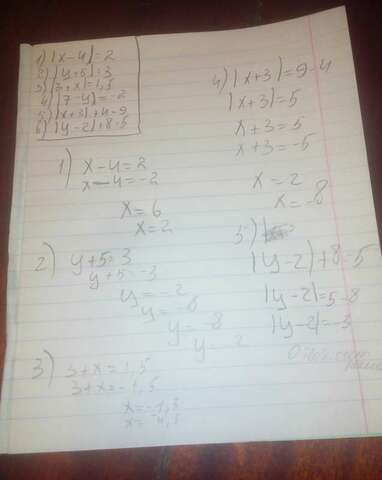 1) |x-4|=2
2) |y+5|=3
3) |3+x|=1,5
4) |7-y|=-2
5) |x+3|+4=9
6) |y-2|+8=5
1) x-4=2
x-4=-2
x=6
x=2
2) y+5=3
y+5=-3
y=-2
y=-8
y=-8
y=-2
3) 3+x=1,5
3+x=-1,5
x=-1,5
x=-4,5
4) |x+3|=9-4
|x+3|=5
x+3=5
x+3=-5
x=2
x=-8
5)
|y-2|+8=5
|y-2|=5-8
|y-2|=-3